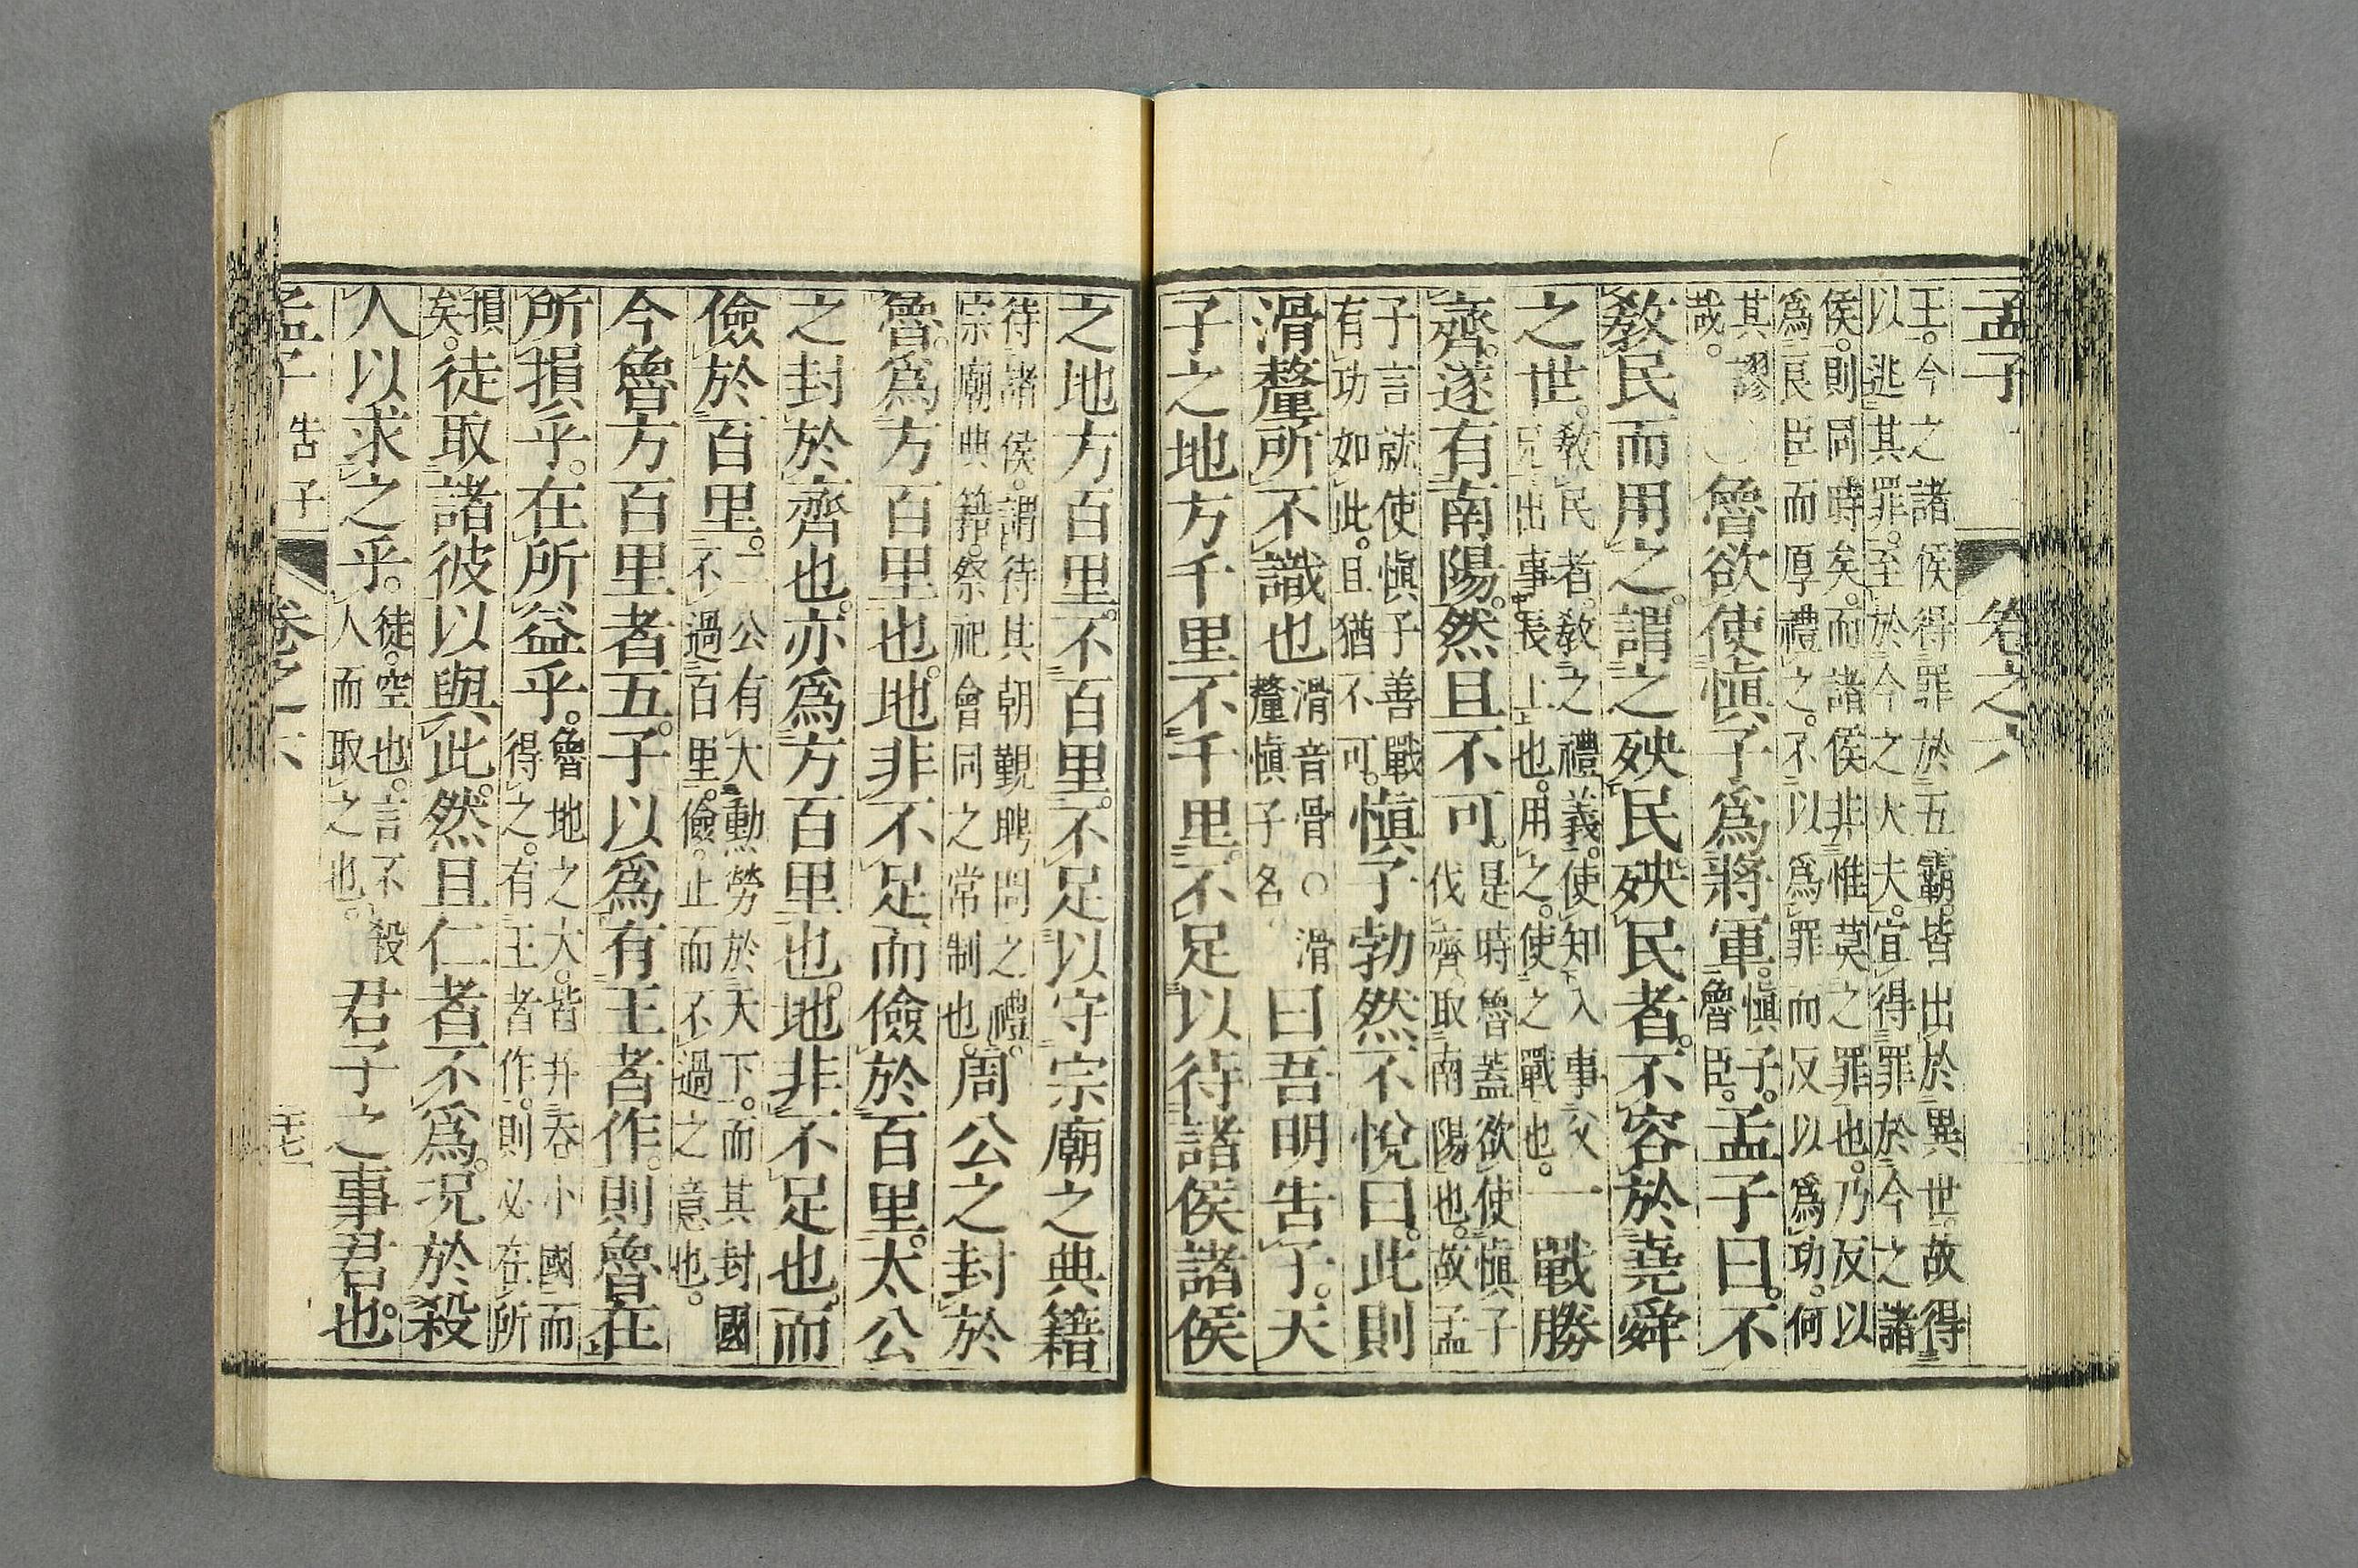 孟子 卷之六
王。今之諸侯得罪於五霸。皆出於異世。故得
以逃其罪。至於今之大夫。宜得罪於今之諸
侯。則同時矣。而諸侯非惟莫之罪也。乃反以
爲良臣而厚禮之。不以爲罪而反以爲功。何
其謬
哉。
○魯欲使愼子爲將軍。愼子。魯臣。孟子曰。不
敎民而用之。謂之殃民。殃民者。不容於堯舜
之世。敎民者。敎之禮義。使知入事父兄出事長上也。用之。使之戰也。一戰勝
齊。遂有南陽。然且不可。是時魯蓋欲使愼子伐齊。取南陽也。故孟
子言就使愼子善戰有功如此。且猶不可。愼子勃然不悅曰。此則
滑釐所不識也滑音骨○滑釐愼子名曰吾明告子。天
子之地方千里。不千里。不足以待諸侯諸侯
之地方百里。不百里。不足以守宗廟之典籍
待諸侯。謂待其朝覲聘問之禮。宗廟典籍。祭祀會同之常制也。周公之封於
魯。爲方百里也。地非不足而儉於百里。太公
之封於齊也。亦爲方百里也。地非不足也。而
儉於百里。二公有大勳勞於天下。而其封國不過百里。儉。止而不過之意也。
今魯方百里者五。子以爲有王者作。則魯在
所損乎。在所益乎。魯地之大。皆幷呑小國而得之。有王者作。則必在所
損矣。徒取諸彼以與此。然且仁者不爲。況於殺
人以求之乎。徒。空也。言不殺人而取之也。君子之事君也。
孟子 告子 卷之六 二十七